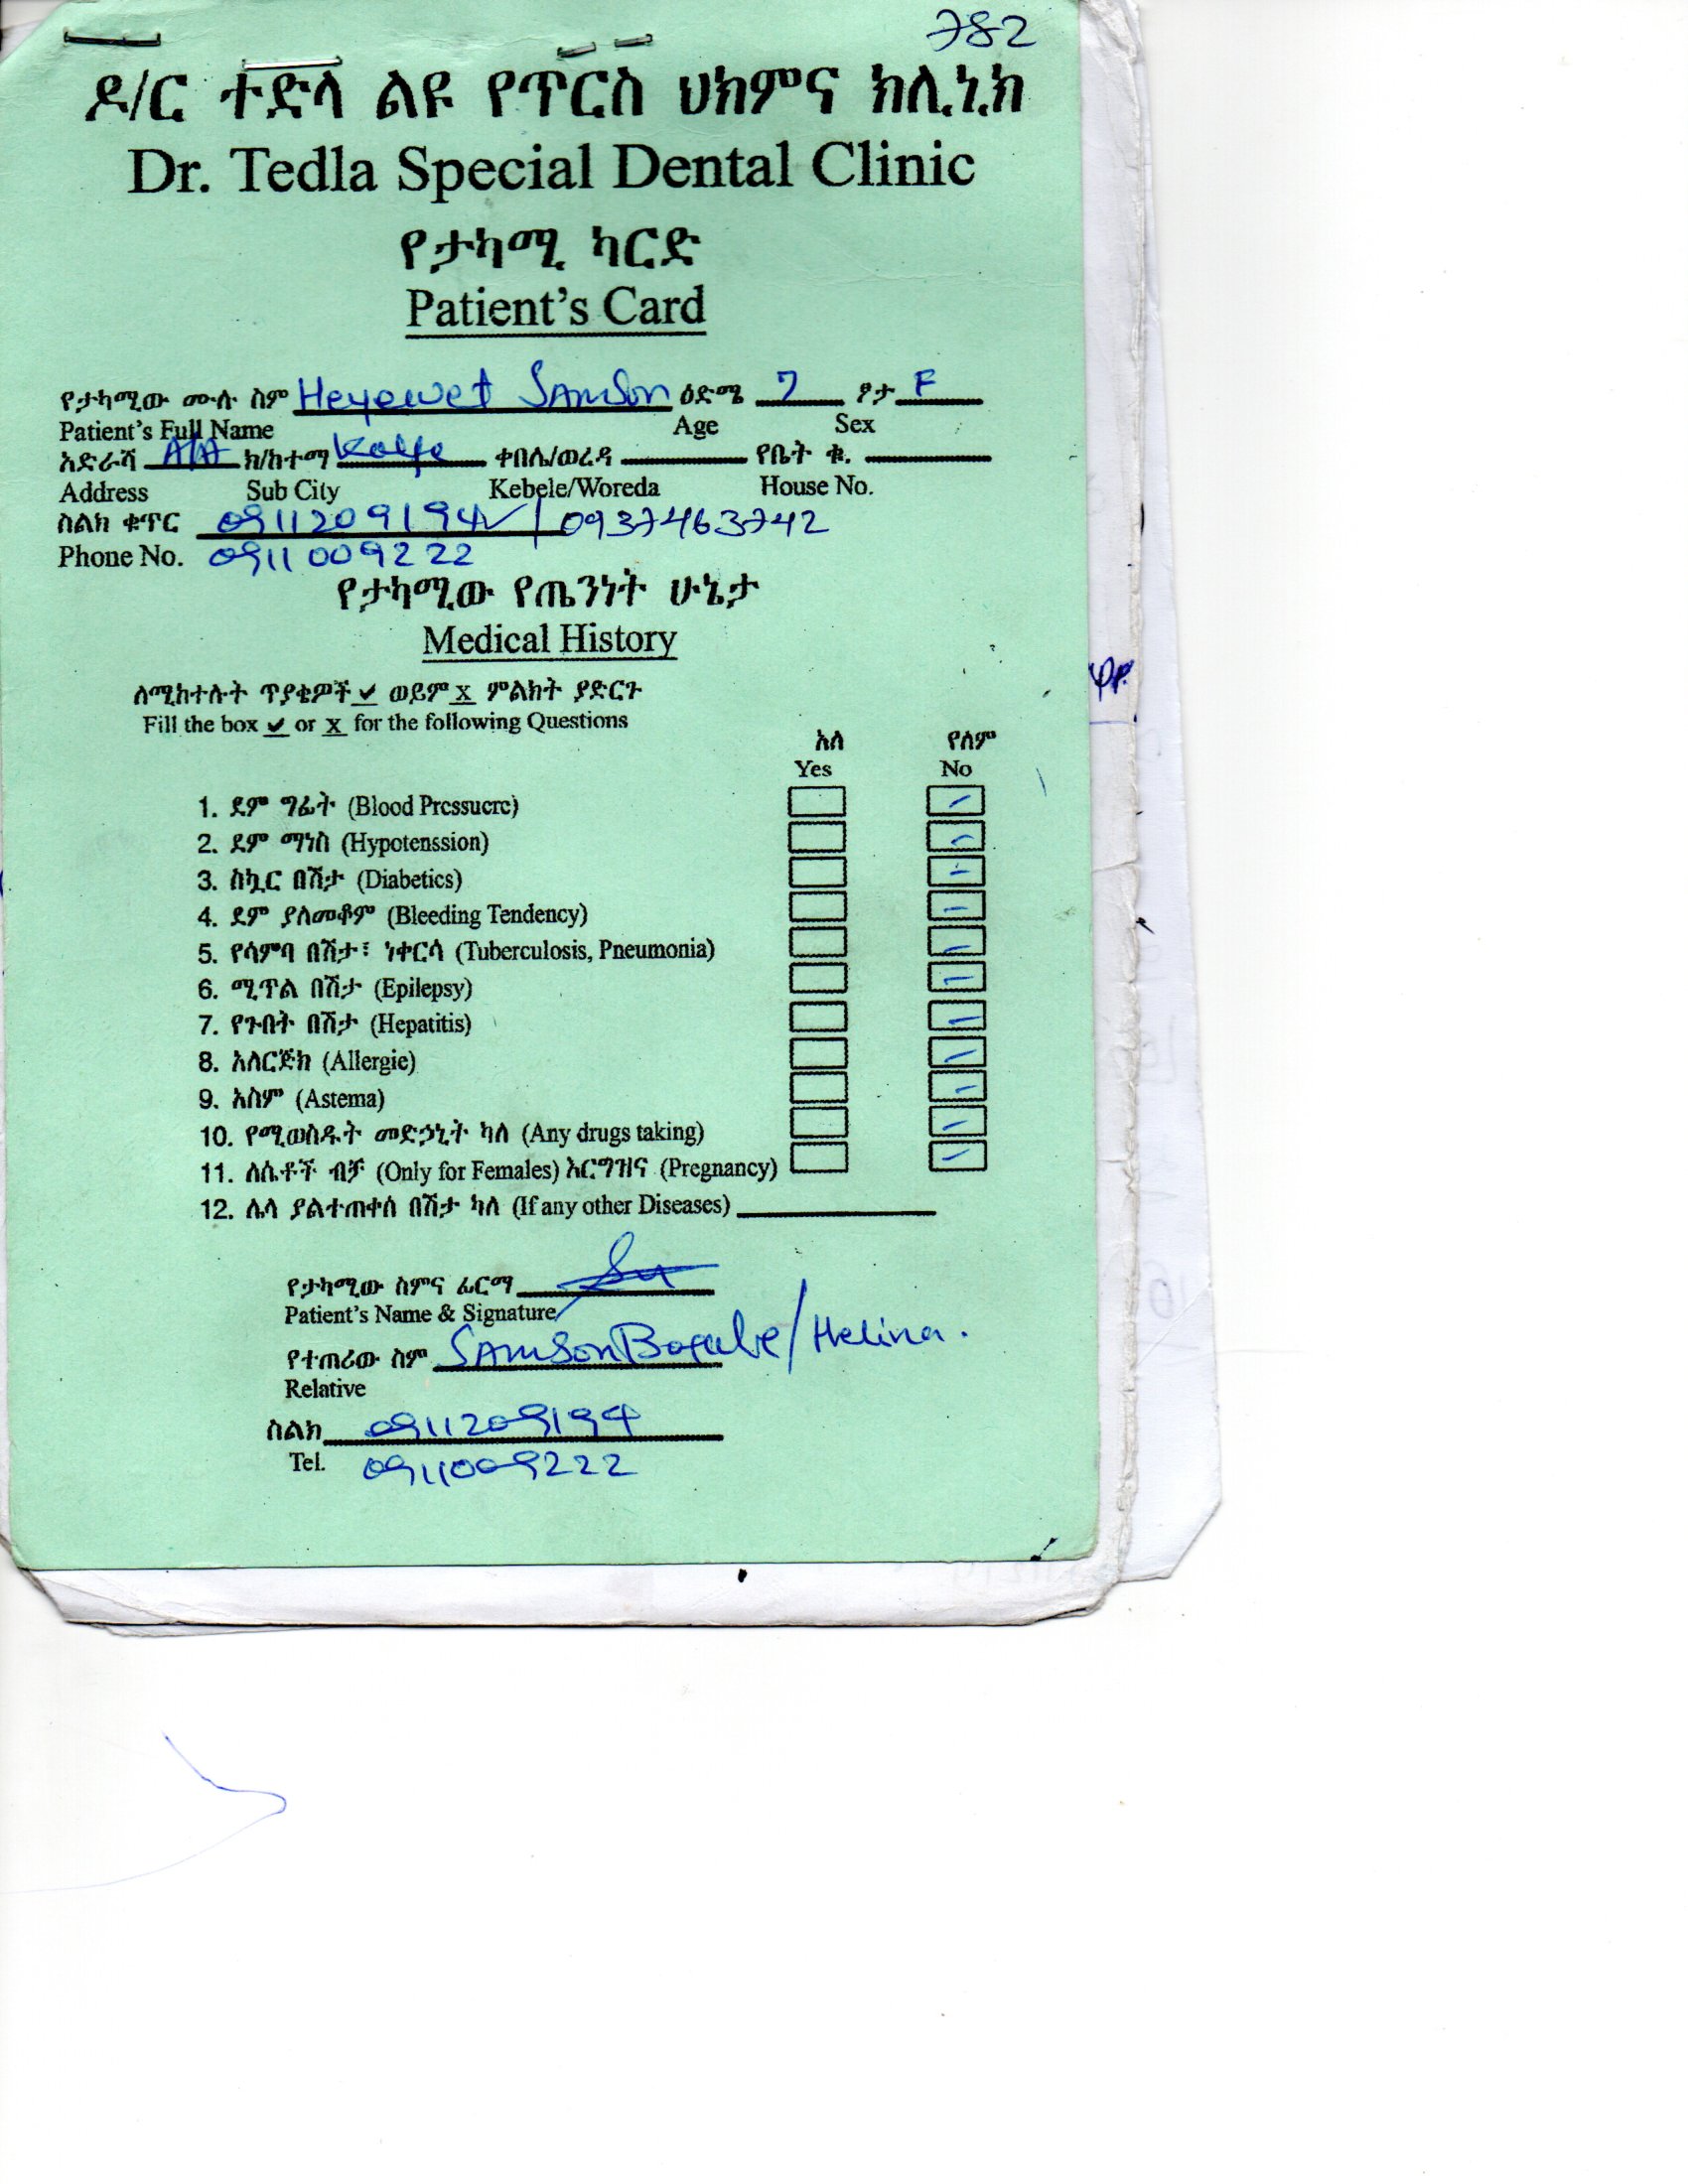 782
ዶ/ር ተድላ ልዩ የጥርስ ህክምና ክሊኒክ
Dr. Tedla Special Dental Clinic
የታካሚ ካርድ
Patient's Card
የታካሚው ሙሉ ስም Heyewet Samson ዕድሜ 7 ፆታ F
Patient's Full Name Age Sex
አድራሻ A/A ክ/ከተማ Kolfe ቀበሌ/ወረዳ የቤት ቁ.
Address Sub City Kebele/Woreda House No.
ስልክ ቁጥር 0911209194✓ / 0937463742
Phone No. 0911009222
የታካሚው የጤንነት ሁኔታ
Medical History
ለሚከተሉት ጥያቄዎች ✔ ወይም x ምልክት ያድርጉ
Fill the box ✔ or x for the following Questions
አለ የለም
Yes No
1. ደም ግፊት (Blood Pressuere)
2. ደም ማነስ (Hypotenssion)
3. ስኳር በሽታ (Diabetics)
4. ደም ያለመቆም (Bleeding Tendency)
5. የሳምባ በሽታ፣ ነቀርሳ (Tuberculosis, Pneumonia)
6. ሚጥል በሽታ (Epilepsy)
7. የጉበት በሽታ (Hepatitis)
8. አለርጅክ (Allergie)
9. አስም (Astema)
10. የሚወስዱት መድኃኒት ካለ (Any drugs taking)
11. ለሴቶች ብቻ (Only for Females) እርግዝና (Pregnancy)
12. ሌላ ያልተጠቀሰ በሽታ ካለ (If any other Diseases)
የታካሚው ስምና ፊርማ
Patient's Name & Signature
የተጠሪው ስም Samson / Helina.
Relative
ስልክ 0911209194
Tel. 0911009222